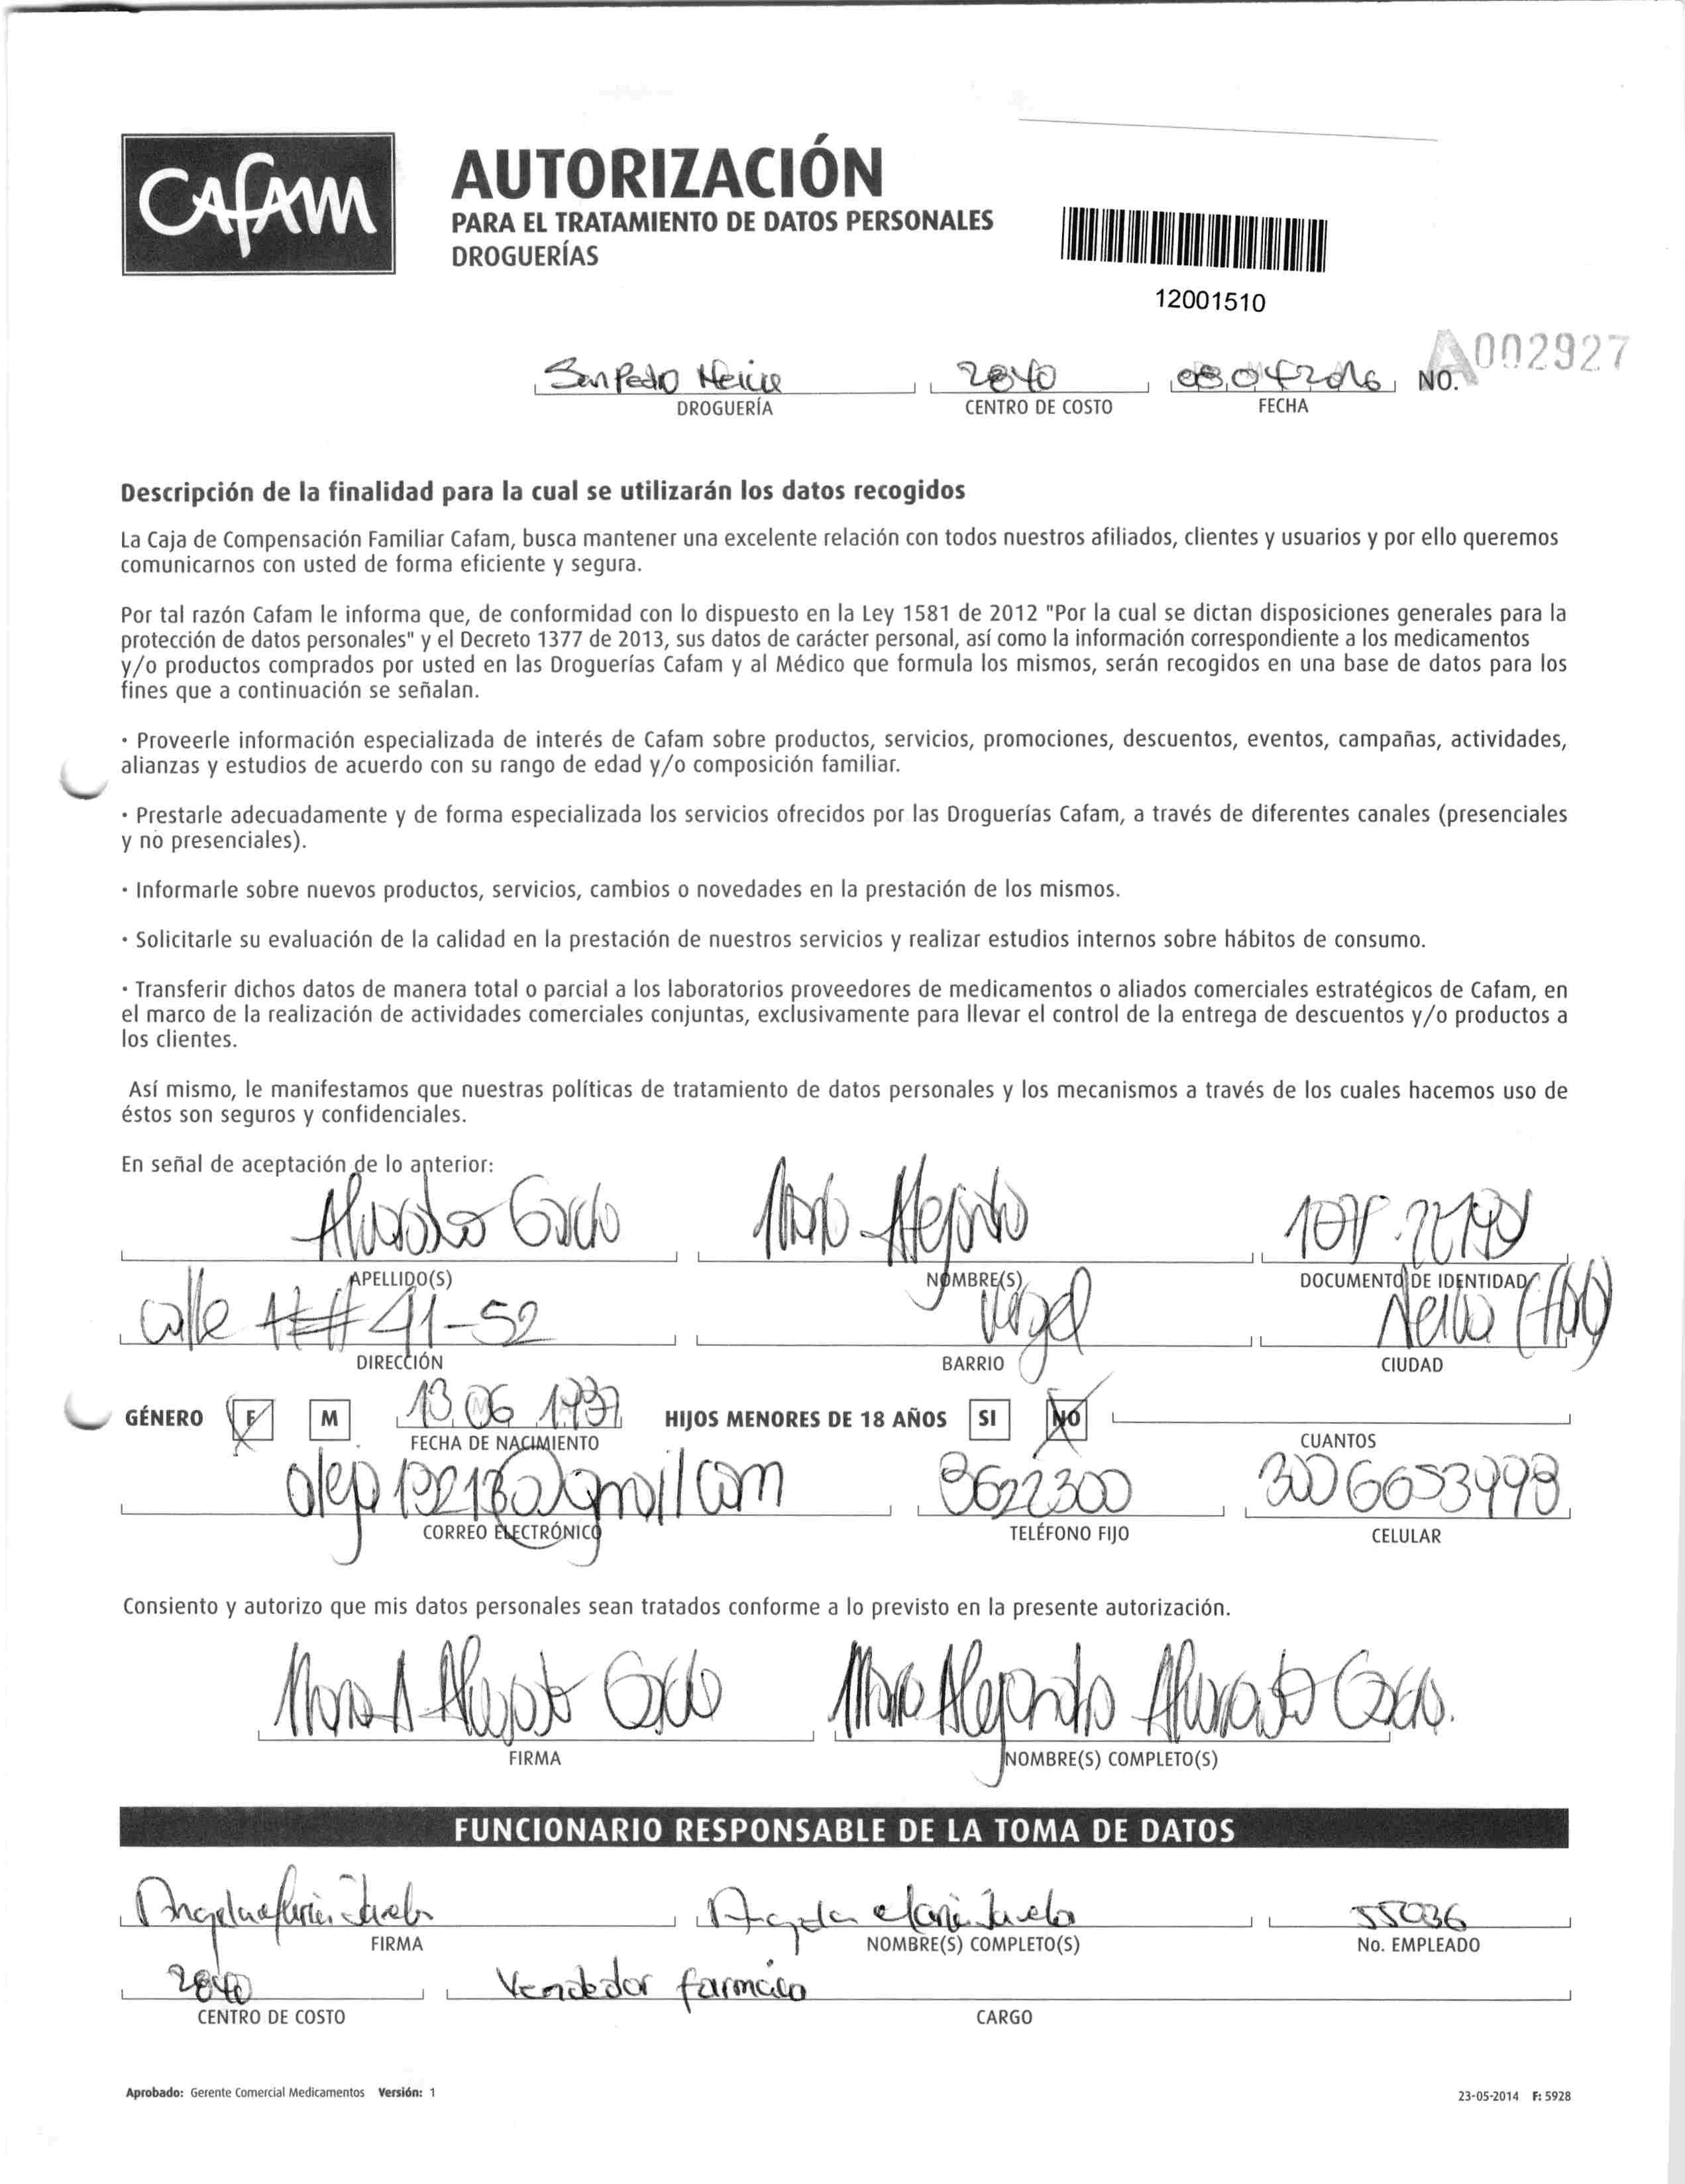 CAFAM
AUTORIZACIÓN
PARA EL TRATAMIENTO DE DATOS PERSONALES
DROGUERÍAS
12001510
A002927
San Pedro 2840 08 04 2016 NO.
DROGUERÍA CENTRO DE COSTO FECHA
Descripción de la finalidad para la cual se utilizarán los datos recogidos
La Caja de Compensación Familiar Cafam, busca mantener una excelente relación con todos nuestros afiliados, clientes y usuarios y por ello queremos
comunicarnos con usted de forma eficiente y segura.
Por tal razón Cafam le informa que, de conformidad con lo dispuesto en la Ley 1581 de 2012 "Por la cual se dictan disposiciones generales para la
protección de datos personales" y el Decreto 1377 de 2013, sus datos de carácter personal, así como la información correspondiente a los medicamentos
y/o productos comprados por usted en las Droguerías Cafam y al Médico que formula los mismos, serán recogidos en una base de datos para los
fines que a continuación se señalan.
· Proveerle información especializada de interés de Cafam sobre productos, servicios, promociones, descuentos, eventos, campañas, actividades,
alianzas y estudios de acuerdo con su rango de edad y/o composición familiar.
· Prestarle adecuadamente y de forma especializada los servicios ofrecidos por las Droguerías Cafam, a través de diferentes canales (presenciales
y no presenciales).
· Informarle sobre nuevos productos, servicios, cambios o novedades en la prestación de los mismos.
· Solicitarle su evaluación de la calidad en la prestación de nuestros servicios y realizar estudios internos sobre hábitos de consumo.
· Transferir dichos datos de manera total o parcial a los laboratorios proveedores de medicamentos o aliados comerciales estratégicos de Cafam, en
el marco de la realización de actividades comerciales conjuntas, exclusivamente para llevar el control de la entrega de descuentos y/o productos a
los clientes.
Así mismo, le manifestamos que nuestras políticas de tratamiento de datos personales y los mecanismos a través de los cuales hacemos uso de
éstos son seguros y confidenciales.
En señal de aceptación de lo anterior:
Alvarado Maria Alejandra
APELLIDO(S) NOMBRE(S) DOCUMENTO DE IDENTIDAD
calle 41-52 Vergel Neiva
DIRECCIÓN BARRIO CIUDAD
GÉNERO F M 13 06 HIJOS MENORES DE 18 AÑOS SI NO
FECHA DE NACIMIENTO CUANTOS
8622300 3006653998
CORREO ELECTRÓNICO TELÉFONO FIJO CELULAR
Consiento y autorizo que mis datos personales sean tratados conforme a lo previsto en la presente autorización.
Maria A Alvarado Maria Alejandra Alvarado
FIRMA NOMBRE(S) COMPLETO(S)
FUNCIONARIO RESPONSABLE DE LA TOMA DE DATOS
Angela Maria Angela Maria 55036
FIRMA NOMBRE(S) COMPLETO(S) No. EMPLEADO
2840 Vendedor
CENTRO DE COSTO CARGO
Aprobado: Gerente Comercial Medicamentos Versión: 1 23-05-2014 F: 5928